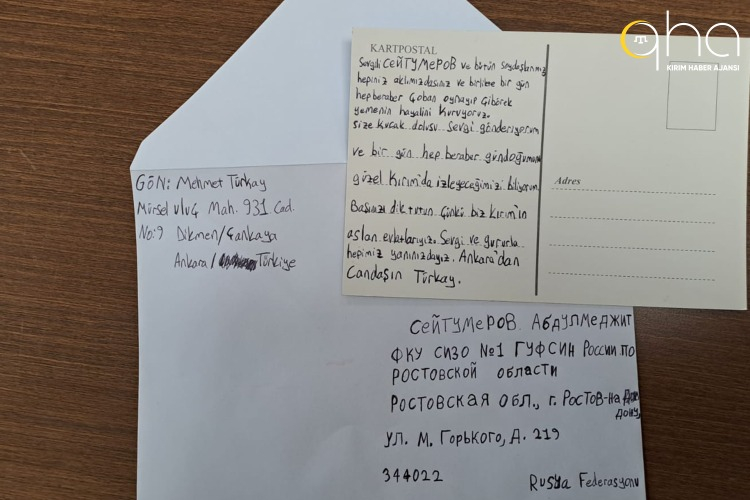 qha
KIRIM HABER AJANSI
KARTPOSTAL
Sevgili СЕЙТУМЕРОВ ve bütün soydaşlarımız
hepiniz aklımızdasınız ve birlikte bir gün
hep beraber Çoban oynayıp Çibörek
yemenin hayalini kuruyoruz.
Size kucak dolusu sevgi gönderiyorum
ve bir gün hep beraber gündoğumunu
güzel Kırım'da izleyeceğimizi biliyorum.
Başınızı dik tutun çünkü biz Kırım'ın
aslan evlatlarıyız. Sevgi ve gururla
hepimiz yanınızdayız. Ankara'dan
Candaşın Türkay.
Adres
GÖN: Mehmet Türkay
Mürsel Uluç Mah. 931 Cad.
No:9 Dikmen/Çankaya
Ankara/ Türkiye
СЕЙТУМЕРОВ АБДУЛМЕДЖИТ
ФКУ СИЗО №1 ГУФСИН РОССИИ ПО
РОСТОВСКОЙ ОБЛАСТИ
РОСТОВСКАЯ ОБЛ., г. РОСТОВ-НА
ДОНУ,
УЛ. М. ГОРЬКОГО, Д. 219
344022
Rusya Federasyonu